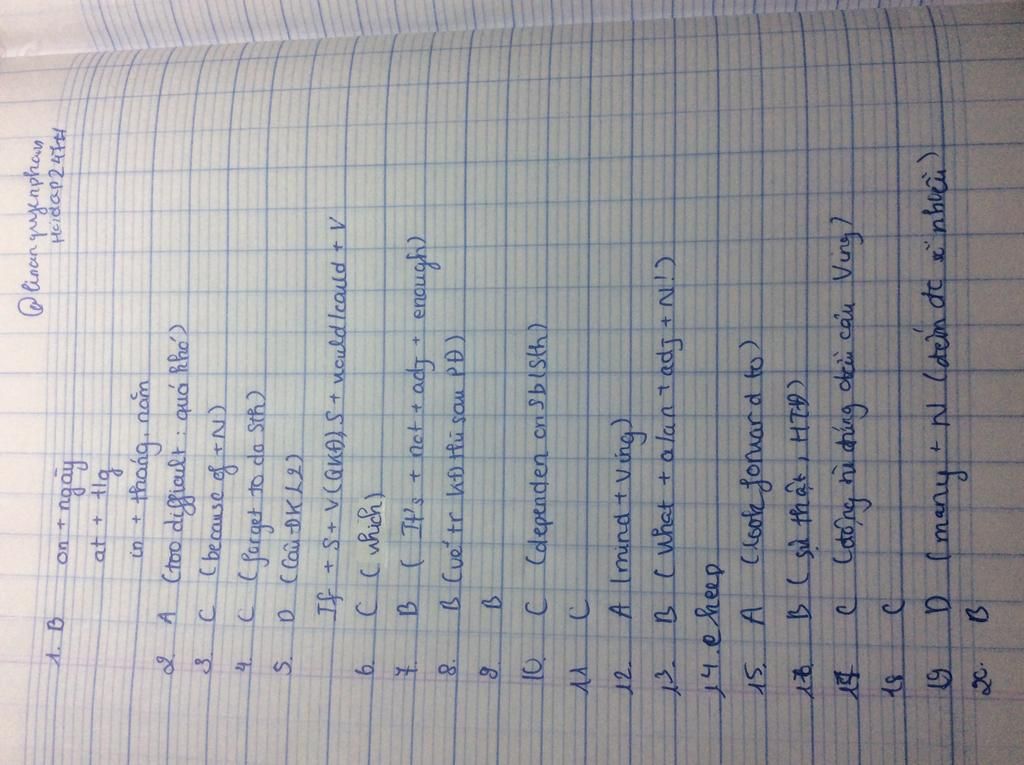 @linanquyenpham
Hoidap247tt
1. B on + ngày
at + t/g
in + tháng, năm
2 A (too difficult : quá khó)
3 C (because of + N)
4 C (forget to do Sth)
5. D (Câu ĐK L2)
If + S + V (QKĐ), S + would/could + V
6. C (which)
7 B (It's + not + adj + enough)
8. B (vế tr KĐ thì sau PĐ)
9 B
10. C (dependen on Sb/Sth)
11 C
12. A (mind + Ving)
13. B (what + a/an + adj + N!)
14. C keep
15. A (look forward to)
16 B (sự thật, HTĐ)
17 C
18 C
19 D (many + N (đếm đc số nhiều)
20. B